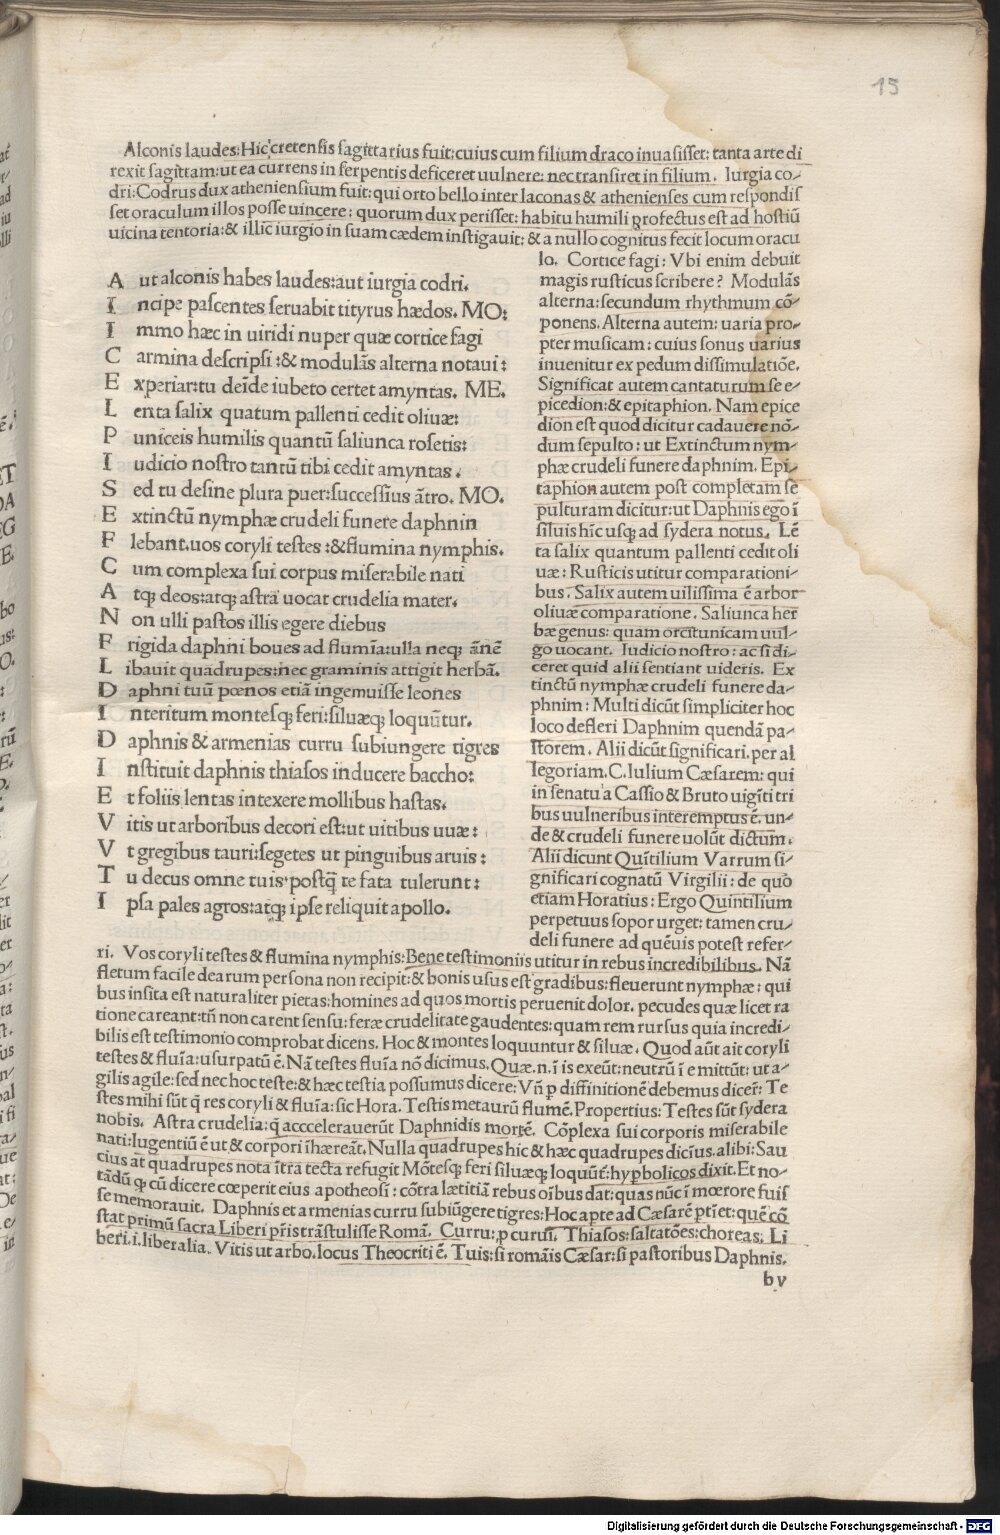 15
Alconis laudes:Hic cretensis sagittarius fuit:cuius cum filium draco inuasisset: tanta arte di
rexit sagittam:ut ea currens in serpentis deficeret uulnere: nec transiret in filium. Iurgia co-
dri:Codrus dux atheniensium fuit:qui orto bello inter laconas & athenienses cum respondis
set oraculum illos posse uincere: quorum dux perisset: habitu humili ꝓfectus est ad hostiū
uicina tentoria:& illic iurgio in suam cædem instigauit: & a nullo cognitus fecit locum oracu
A ut alconis habes laudes:aut iurgia codri.
I ncipe pascentes seruabit tityrus hædos. MO:
I mmo hæc in uiridi nuper quæ cortice fagi
C armina descripsi :& modulās alterna notaui:
E xperiar:tu deīde iubeto certet amyntas. ME.
L enta salix quatum pallenti cedit oliuæ:
P uniceis humilis quantū saliunca rosetis:
I udicio nostro tantū tibi cedit amyntas .
S ed tu desine plura puer:successius ātro. MO.
E xtinctū nymphæ crudeli funere daphnin
F lebant.uos coryli testes :&flumina nymphis.
C um complexa sui corpus miserabile nati
A tqꝫ deos:atqꝫ astra uocat crudelia mater.
N on ulli pastos illis egere diebus
F rigida daphni boues ad flumīa:ulla neqꝫ ānē
L ibauit quadrupes:nec graminis attigit herbā.
D aphni tuū pœnos etiā ingemuisse leones
I nteritum montesqꝫ feri:siluæqꝫ loquūtur.
D aphnis & armenias curru subiungere tigres
I nstituit daphnis thiasos inducere baccho:
E t foliis lentas intexere mollibus hastas.
V itis ut arboribus decori est:ut uitibus uuæ:
V t gregibus tauri:segetes ut pinguibus aruis:
T u decus omne tuis.postq̄ te fata tulerunt:
I psa pales agros:atqꝫ ipse reliquit apollo.
lo. Cortice fagi: Vbi enim debuit
magis rusticus scribere? Modulās
alterna:secundum rhythmum cō-
ponens. Alterna autem: uaria pro-
pter musicam: cuius sonus uarius
inuenitur ex pedum dissimulatiōe.
Significat autem cantaturum se e-
picedion:& epitaphion. Nam epice
dion est quod dicitur cadauere nō-
dum sepulto: ut Extinctum nym-
phæ crudeli funere daphnim. Epi-
taphion autem post completam se
pulturam dicitur:ut Daphnis ego ī
siluis hīc usqꝫ ad sydera notus. Lē
ta salix quantum pallenti cedit oli
uæ: Rusticis utitur comparationi-
bus. Salix autem uilissima ē arbor
oliuæ comparatione. Saliunca her
bæ genus: quam orcitunicam uul-
go uocant. Iudicio nostro: ac si di-
ceret quid alii sentiant uideris. Ex
tinctū nymphæ crudeli funere da-
phnim: Multi dicūt simpliciter hoc
loco defleri Daphnim quendā pa-
storem. Alii dicūt significari.per al
legoriam.C.Iulium Cæsarem: qui
in senatu a Cassio & Bruto uigīti tri
bus uulneribus interemptus ē. un-
de & crudeli funere uolūt dictum.
Alii dicunt Quītilium Varrum si-
gnificari cognatū Virgilii: de quo
etiam Horatius: Ergo Quintilium
perpetuus sopor urget: tamen cru-
deli funere ad quēuis potest refer-
ri. Vos coryli testes & flumina nymphis:Bene testimoniis utitur in rebus incredibilibus. Nā
fletum facile dearum persona non recipit:& bonis usus est gradibus:fleuerunt nymphæ: qui
bus insita est naturaliter pietas:homines ad quos mortis peruenit dolor. pecudes quæ licet ra
tione careant:tn̄ non carent sensu:feræ crudelitate gaudentes:quam rem rursus quia incredi-
bilis est testimonio comprobat dicens. Hoc & montes loquuntur & siluæ. Quod aūt ait coryli
testes & fluīa:usurpatū ē. Nā testes fluīa nō dicimus. Quæ.n.ī is exeūt:neutrū ī e mittūt: ut a-
gilis agile:sed nec hoc teste:& hæc testia possumus dicere: Vn̄ ꝑ diffinitionē debemus dicer: Te
stes mihi sūt q̄ res coryli & fluīa:sic Hora. Testis metaurū flumē.Propertius: Testes sūt sydera
nobis. Astra crudelia:q̄ acccelerauerūt Daphnidis mortē. Cōplexa sui corporis miserabile
nati:lugentiū ē ut & corpori īhæreāt.Nulla quadrupes hic & hæc quadrupes dicīus.alibi:Sau
cius at quadrupes nota ītra tecta refugit Mōtesqꝫ feri siluæqꝫ loquūt:hyꝑbolicos dixit.Et no-
tādū ꝙ cū dicere cœperit eius apotheosi: cōtra lætitiā rebus oībus dat:quas nūc ī mœrore fuis
se memorauit. Daphnis et armenias curru subiūgere tigres:Hoc apte ad Cæsarē ptīet:quē cō
stat primū sacra Liberi pr̄is trāstulisse Romā. Curru:ꝓ curusi. Thiasos:saltatōes:choreas: Li
beri.i.liberalia. Vitis ut arbo.locus Theocriti ē. Tuis:si romāis Cæsar:si pastoribus Daphnis.
b v
Digitalisierung gefördert durch die Deutsche Forschungsgemeinschaft - DFG